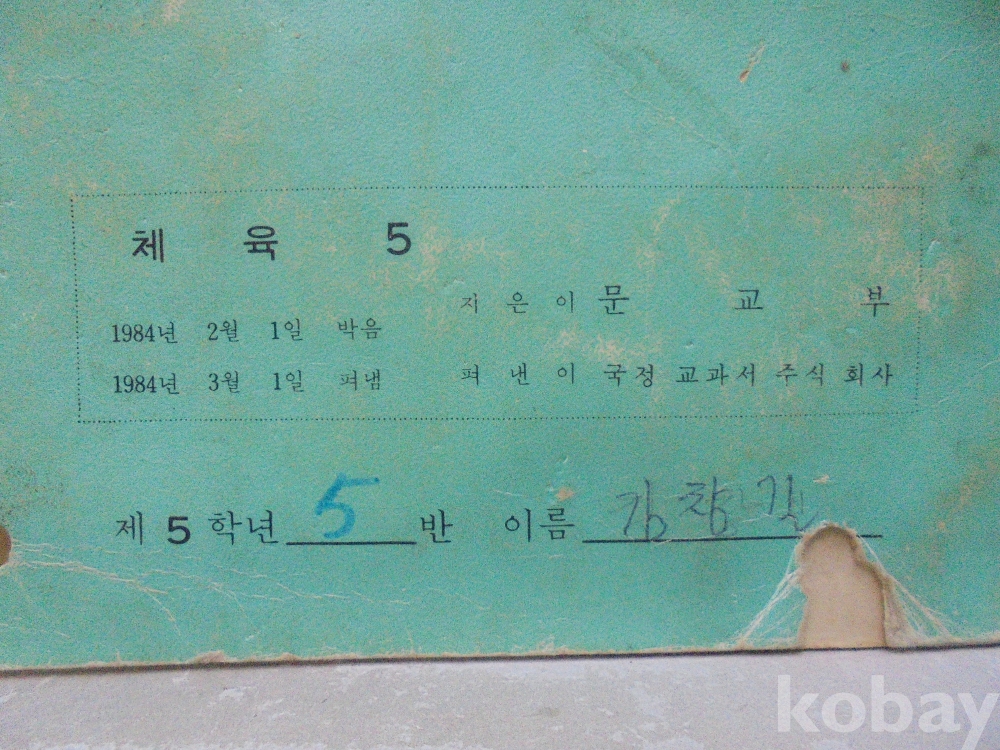 체 육 5
1984년 2월 1일 박음
1984년 3월 1일 펴냄
지 은 이 문 교 부
펴 낸 이 국정 교과서 주식 회사
제 5 학년 5 반 이름 김창길
kobay